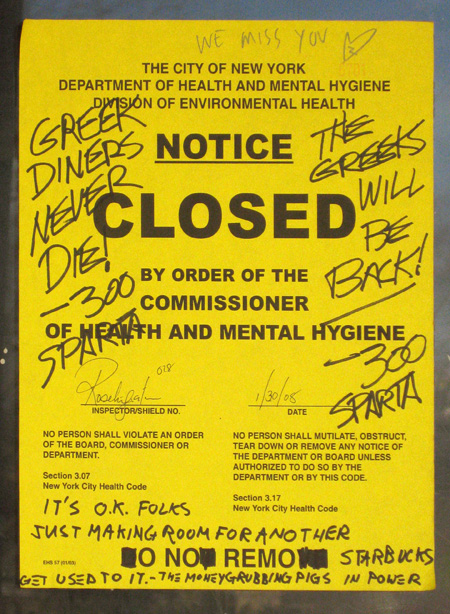 WE MISS YOU
THE CITY OF NEW YORK
DEPARTMENT OF HEALTH AND MENTAL HYGIENE
DIVISION OF ENVIRONMENTAL HEALTH
GREEK
DINERS
NEVER
DIE!
-300
SPARTA
NOTICE
CLOSED
THE
GREEKS
WILL
BE
BACK!
-300
SPARTA
BY ORDER OF THE
COMMISSIONER
OF HEALTH AND MENTAL HYGIENE
1/30/08
INSPECTOR/SHIELD NO.
DATE
NO PERSON SHALL VIOLATE AN ORDER
OF THE BOARD, COMMISSIONER OR
DEPARTMENT.
Section 3.07
New York City Health Code
NO PERSON SHALL MUTILATE, OBSTRUCT,
TEAR DOWN OR REMOVE ANY NOTICE OF
THE DEPARTMENT OR BOARD UNLESS
AUTHORIZED TO DO SO BY THE
DEPARTMENT OR BY THIS CODE.
Section 3.17
New York City Health Code
IT'S O.K. FOLKS
JUST MAKING ROOM FOR ANOTHER
O NO REMO STARBUCKS
EHS 57 (01/03)
GET USED TO IT.-THE MONEYGRUBBING PIGS IN POWER